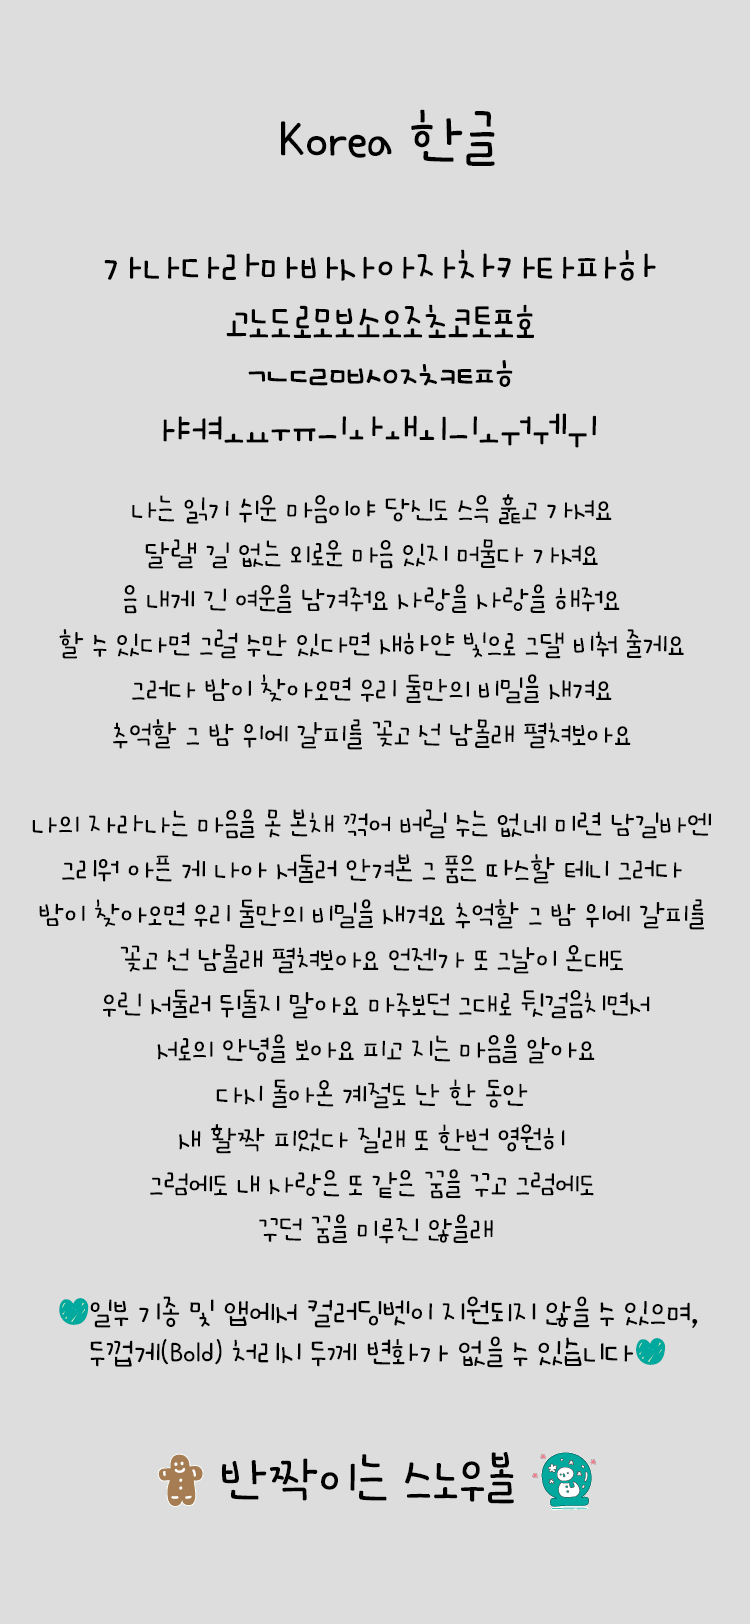 Korea 한글
가나다라마바사아자차카타파하
고노도로모보소오조초코토포호
ㄱㄴㄷㄹㅁㅂㅅㅇㅈㅊㅋㅌㅍㅎ
나는 읽기 쉬운 마음이야 당신도 스윽 훑고 가셔요
달랠 길 없는 외로운 마음 있지 머물다 가셔요
음 내게 긴 여운을 남겨줘요 사랑을 사랑을 해줘요
할 수 있다면 그럴 수만 있다면 새하얀 빛으로 그댈 비춰 줄게요
그러다 밤이 찾아오면 우리 둘만의 비밀을 새겨요
추억할 그 밤 위에 갈피를 꽂고 선 남몰래 펼쳐보아요
나의 자라나는 마음을 못 본채 꺾어 버릴 수는 없네 미련 남길바엔
그리워 아픈 게 나아 서둘러 안겨본 그 품은 따스할 테니 그러다
밤이 찾아오면 우리 둘만의 비밀을 새겨요 추억할 그 밤 위에 갈피를
꽂고 선 남몰래 펼쳐보아요 언젠가 또 그날이 온대도
우린 서둘러 뒤돌지 말아요 마주보던 그대로 뒷걸음치면서
서로의 안녕을 보아요 피고 지는 마음을 알아요
다시 돌아온 계절도 난 한 동안
새 활짝 피었다 질래 또 한번 영원히
그럼에도 내 사랑은 또 같은 꿈을 꾸고 그럼에도
꾸던 꿈을 미루진 않을래
일부 기종 및 앱에서 컬러딩벳이 지원되지 않을 수 있으며,
두껍게(Bold) 처리시 두께 변화가 없을 수 있습니다
반짝이는 스노우볼